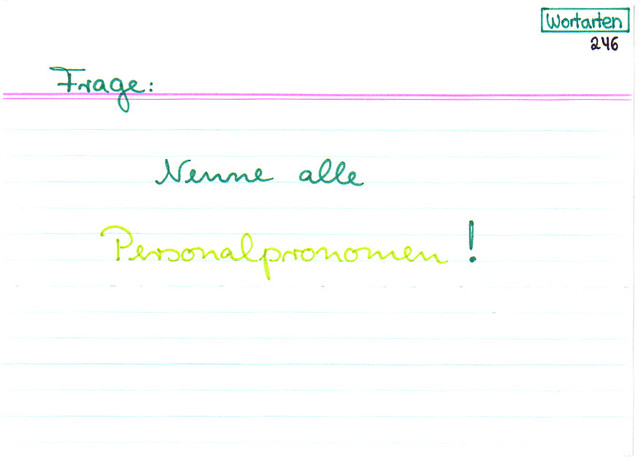 Wortarten
246
Frage:
Nenne alle
Personalpronomen!